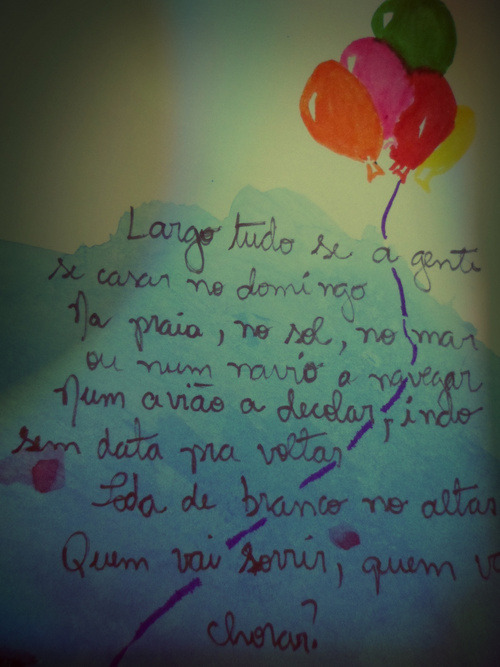 Largo tudo se a gente
se casar no domingo
Na praia, no sol, no mar
ou num navio a navegar
Num avião a decolar, indo
sem data pra voltar
Toda de branco no altar
Quem vai sorrir, quem
chorar?